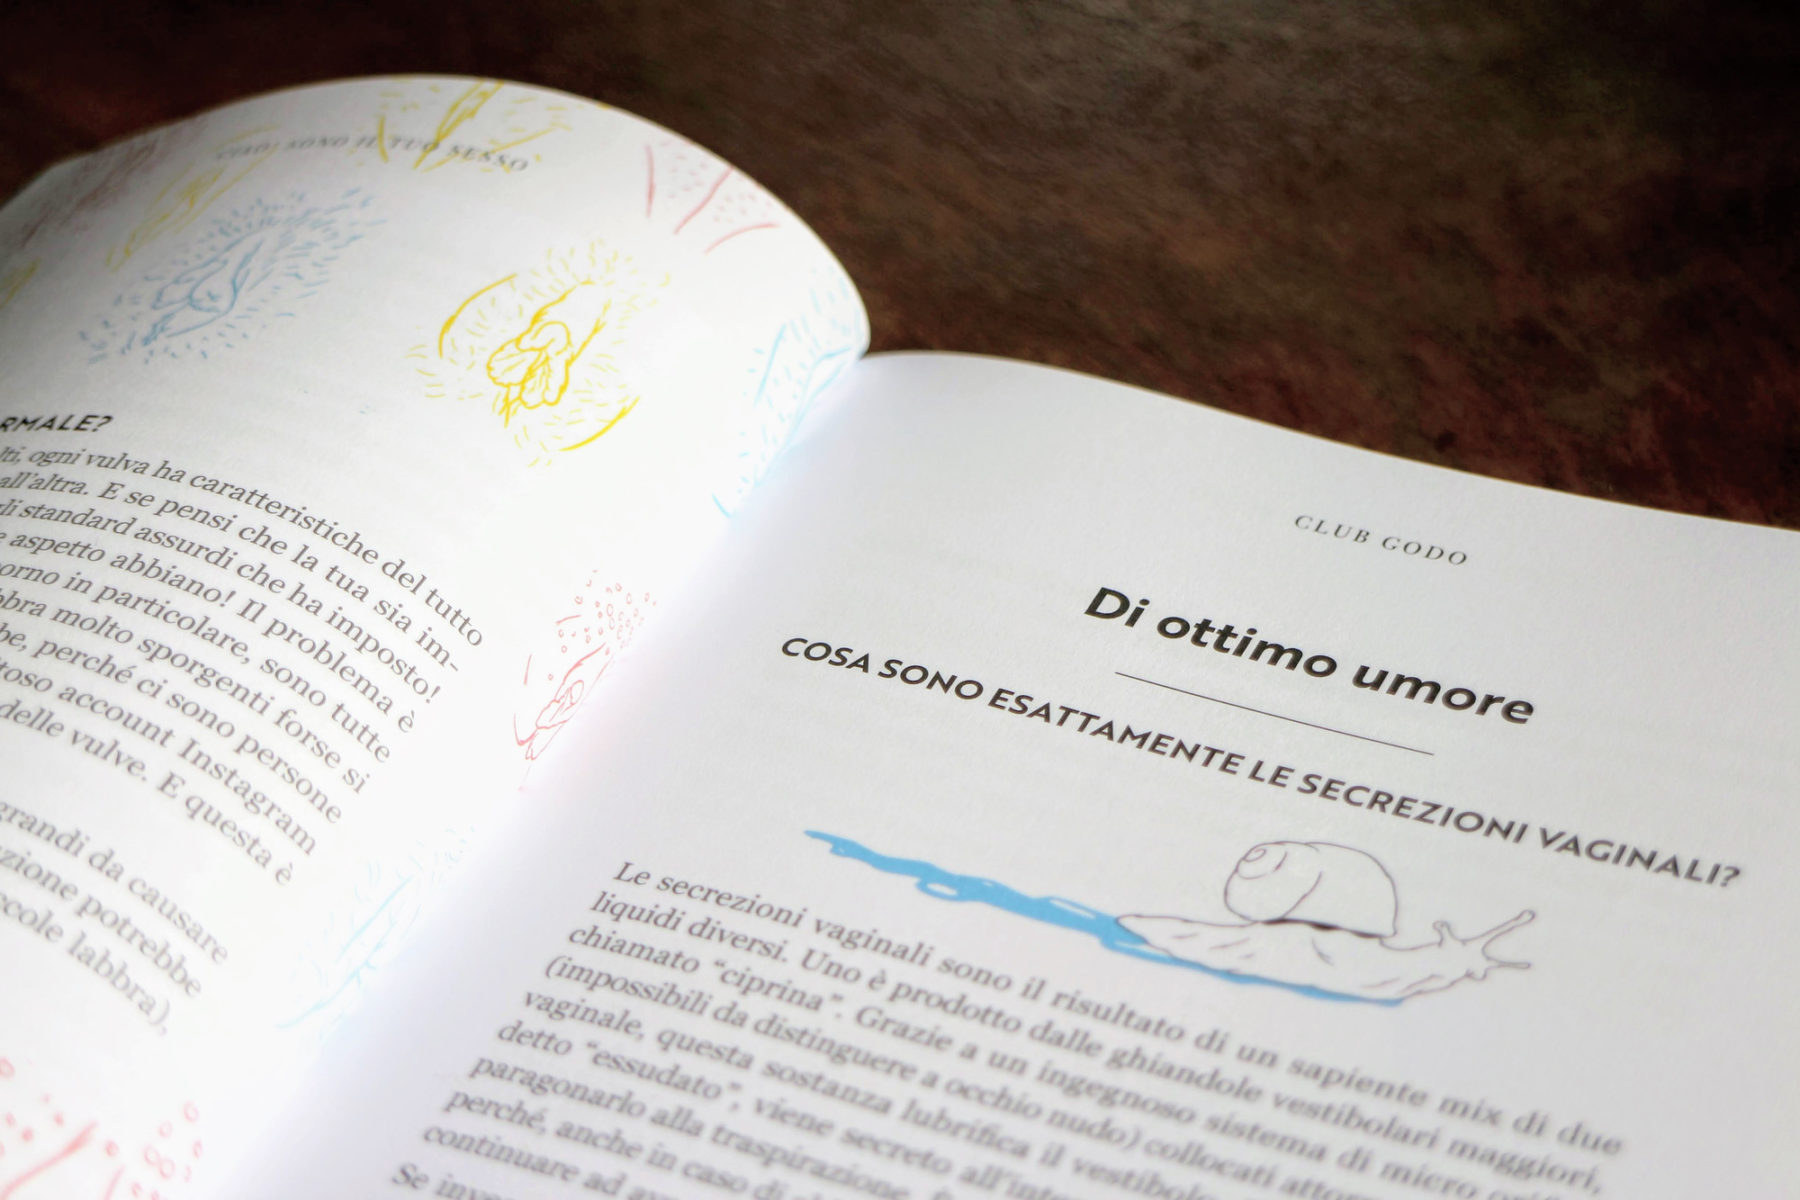 CIAO! SONO IL TUO SESSO
RMALE?
lti, ogni vulva ha caratteristiche del tutto
all'altra. E se pensi che la tua sia im-
gli standard assurdi che ha imposto!
e aspetto abbiano! Il problema è
orno in particolare, sono tutte
bbra molto sporgenti forse si
be, perché ci sono persone
toso account Instagram
delle vulve. E questa è
grandi da causare
zione potrebbe
ccole labbra),
CLUB GODO
Di ottimo umore
COSA SONO ESATTAMENTE LE SECREZIONI VAGINALI?
Le secrezioni vaginali sono il risultato di un sapiente mix di due
liquidi diversi. Uno è prodotto dalle ghiandole vestibolari maggiori,
chiamato “ciprina”. Grazie a un ingegnoso sistema di micro
(impossibili da distinguere a occhio nudo) collocati
vaginale, questa sostanza lubrifica il
detto “essudato”, viene secreto
paragonarlo alla traspirazione,
perché, anche in caso di
continuare ad
Se